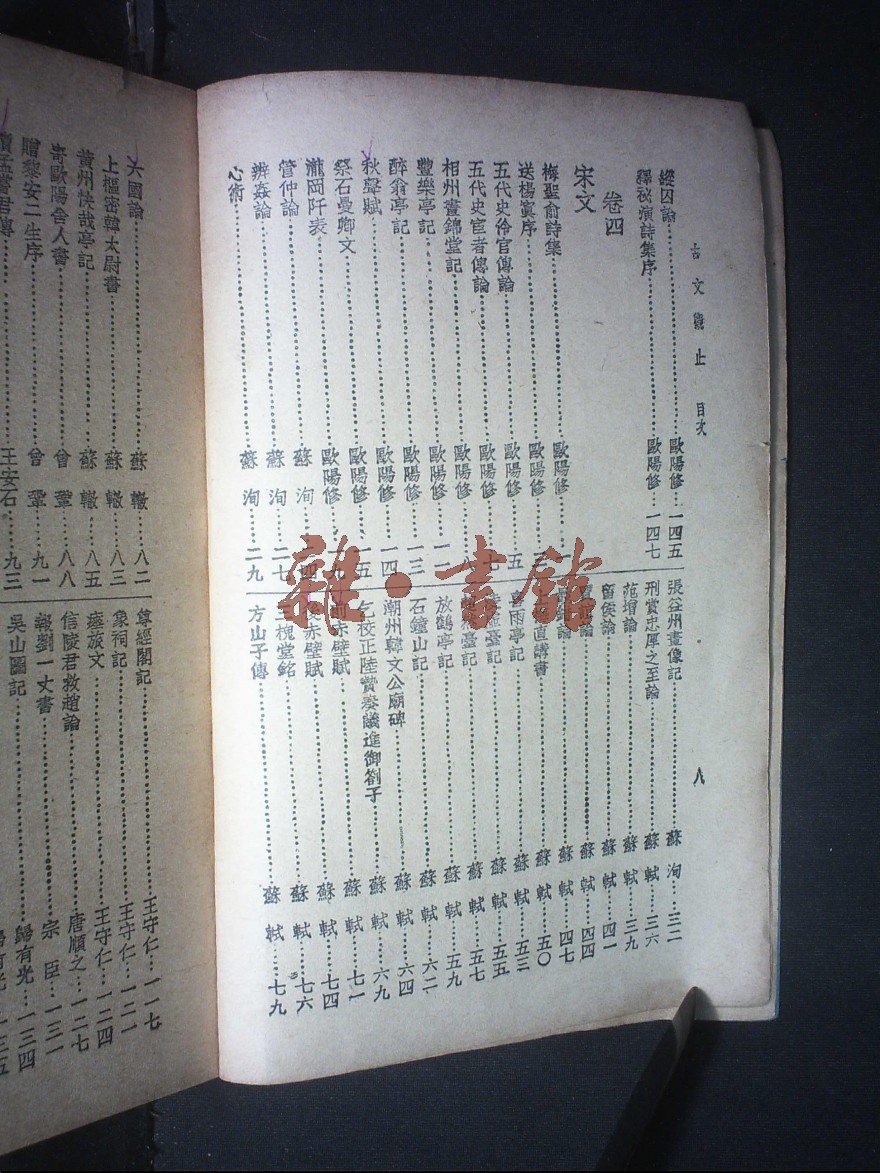 古文觀止 目次
八
縱囚論 歐陽修 一四五
釋秘演詩集序 歐陽修 一四七
卷四
宋文
梅聖俞詩集 歐陽修
送楊寘序 歐陽修
五代史伶官傳論 歐陽修 五
五代史宦者傳論 歐陽修
相州晝錦堂記 歐陽修
豐樂亭記 歐陽修 一一
醉翁亭記 歐陽修 一三
秋聲賦 歐陽修 一四
祭石曼卿文 歐陽修 一五
瀧岡阡表 歐陽修
管仲論 蘇洵
辨姦論 蘇洵 二七
心術 蘇洵 二九
張益州畫像記 蘇洵 三二
刑賞忠厚之至論 蘇軾 三六
范增論 蘇軾 三九
留侯論 蘇軾 四一
論 蘇軾 四四
論 蘇軾 四七
直講書 蘇軾 五〇
喜雨亭記 蘇軾 五三
臺記 蘇軾 五五
臺記 蘇軾 五七
放鶴亭記 蘇軾 五九
石鐘山記 蘇軾 六二
潮州韓文公廟碑 蘇軾 六四
乞校正陸贄奏議進御劄子 蘇軾 六九
赤壁賦 蘇軾 七一
後赤壁賦 蘇軾 七四
三槐堂銘 蘇軾 七六
方山子傳 蘇軾 七九
六國論 蘇轍 八二
上樞密韓太尉書 蘇轍 八三
黃州快哉亭記 蘇轍 八五
寄歐陽舍人書 曾鞏 八八
贈黎安二生序 曾鞏 九一
讀孟嘗君傳 王安石 九三
尊經閣記 王守仁 一一七
象祠記 王守仁 一二一
瘞旅文 王守仁 一二四
信陵君救趙論 唐順之 一二七
報劉一丈書 宗臣 一三一
吳山圖記 歸有光 一三四
歸有光 一三五
雜·書館